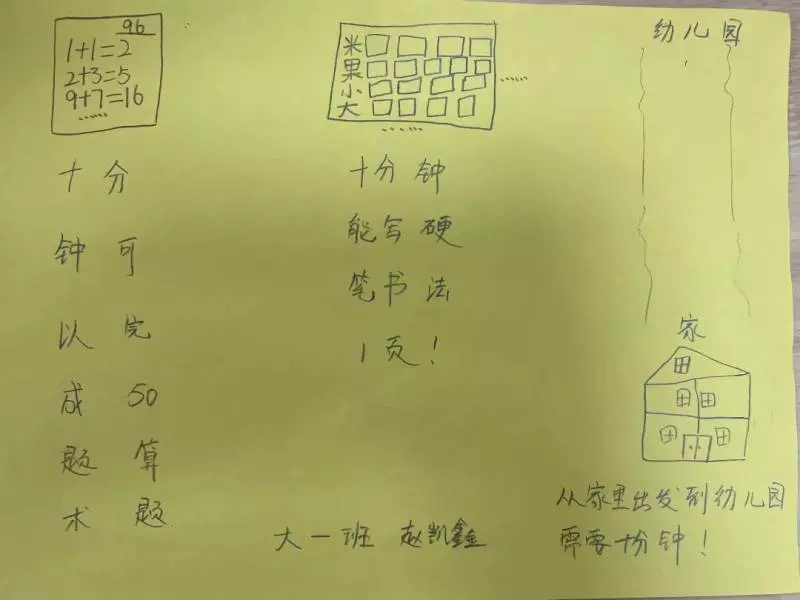 96
1+1=2
2+3=5
9+7=16
......
十分
钟可
以完
成50
题算
术题
米
果
小
大
......
......
十分钟
能写硬
笔书法
1页！
幼儿园
家
从家里出发到幼儿园
需要十分钟！
大一班 赵凯鑫